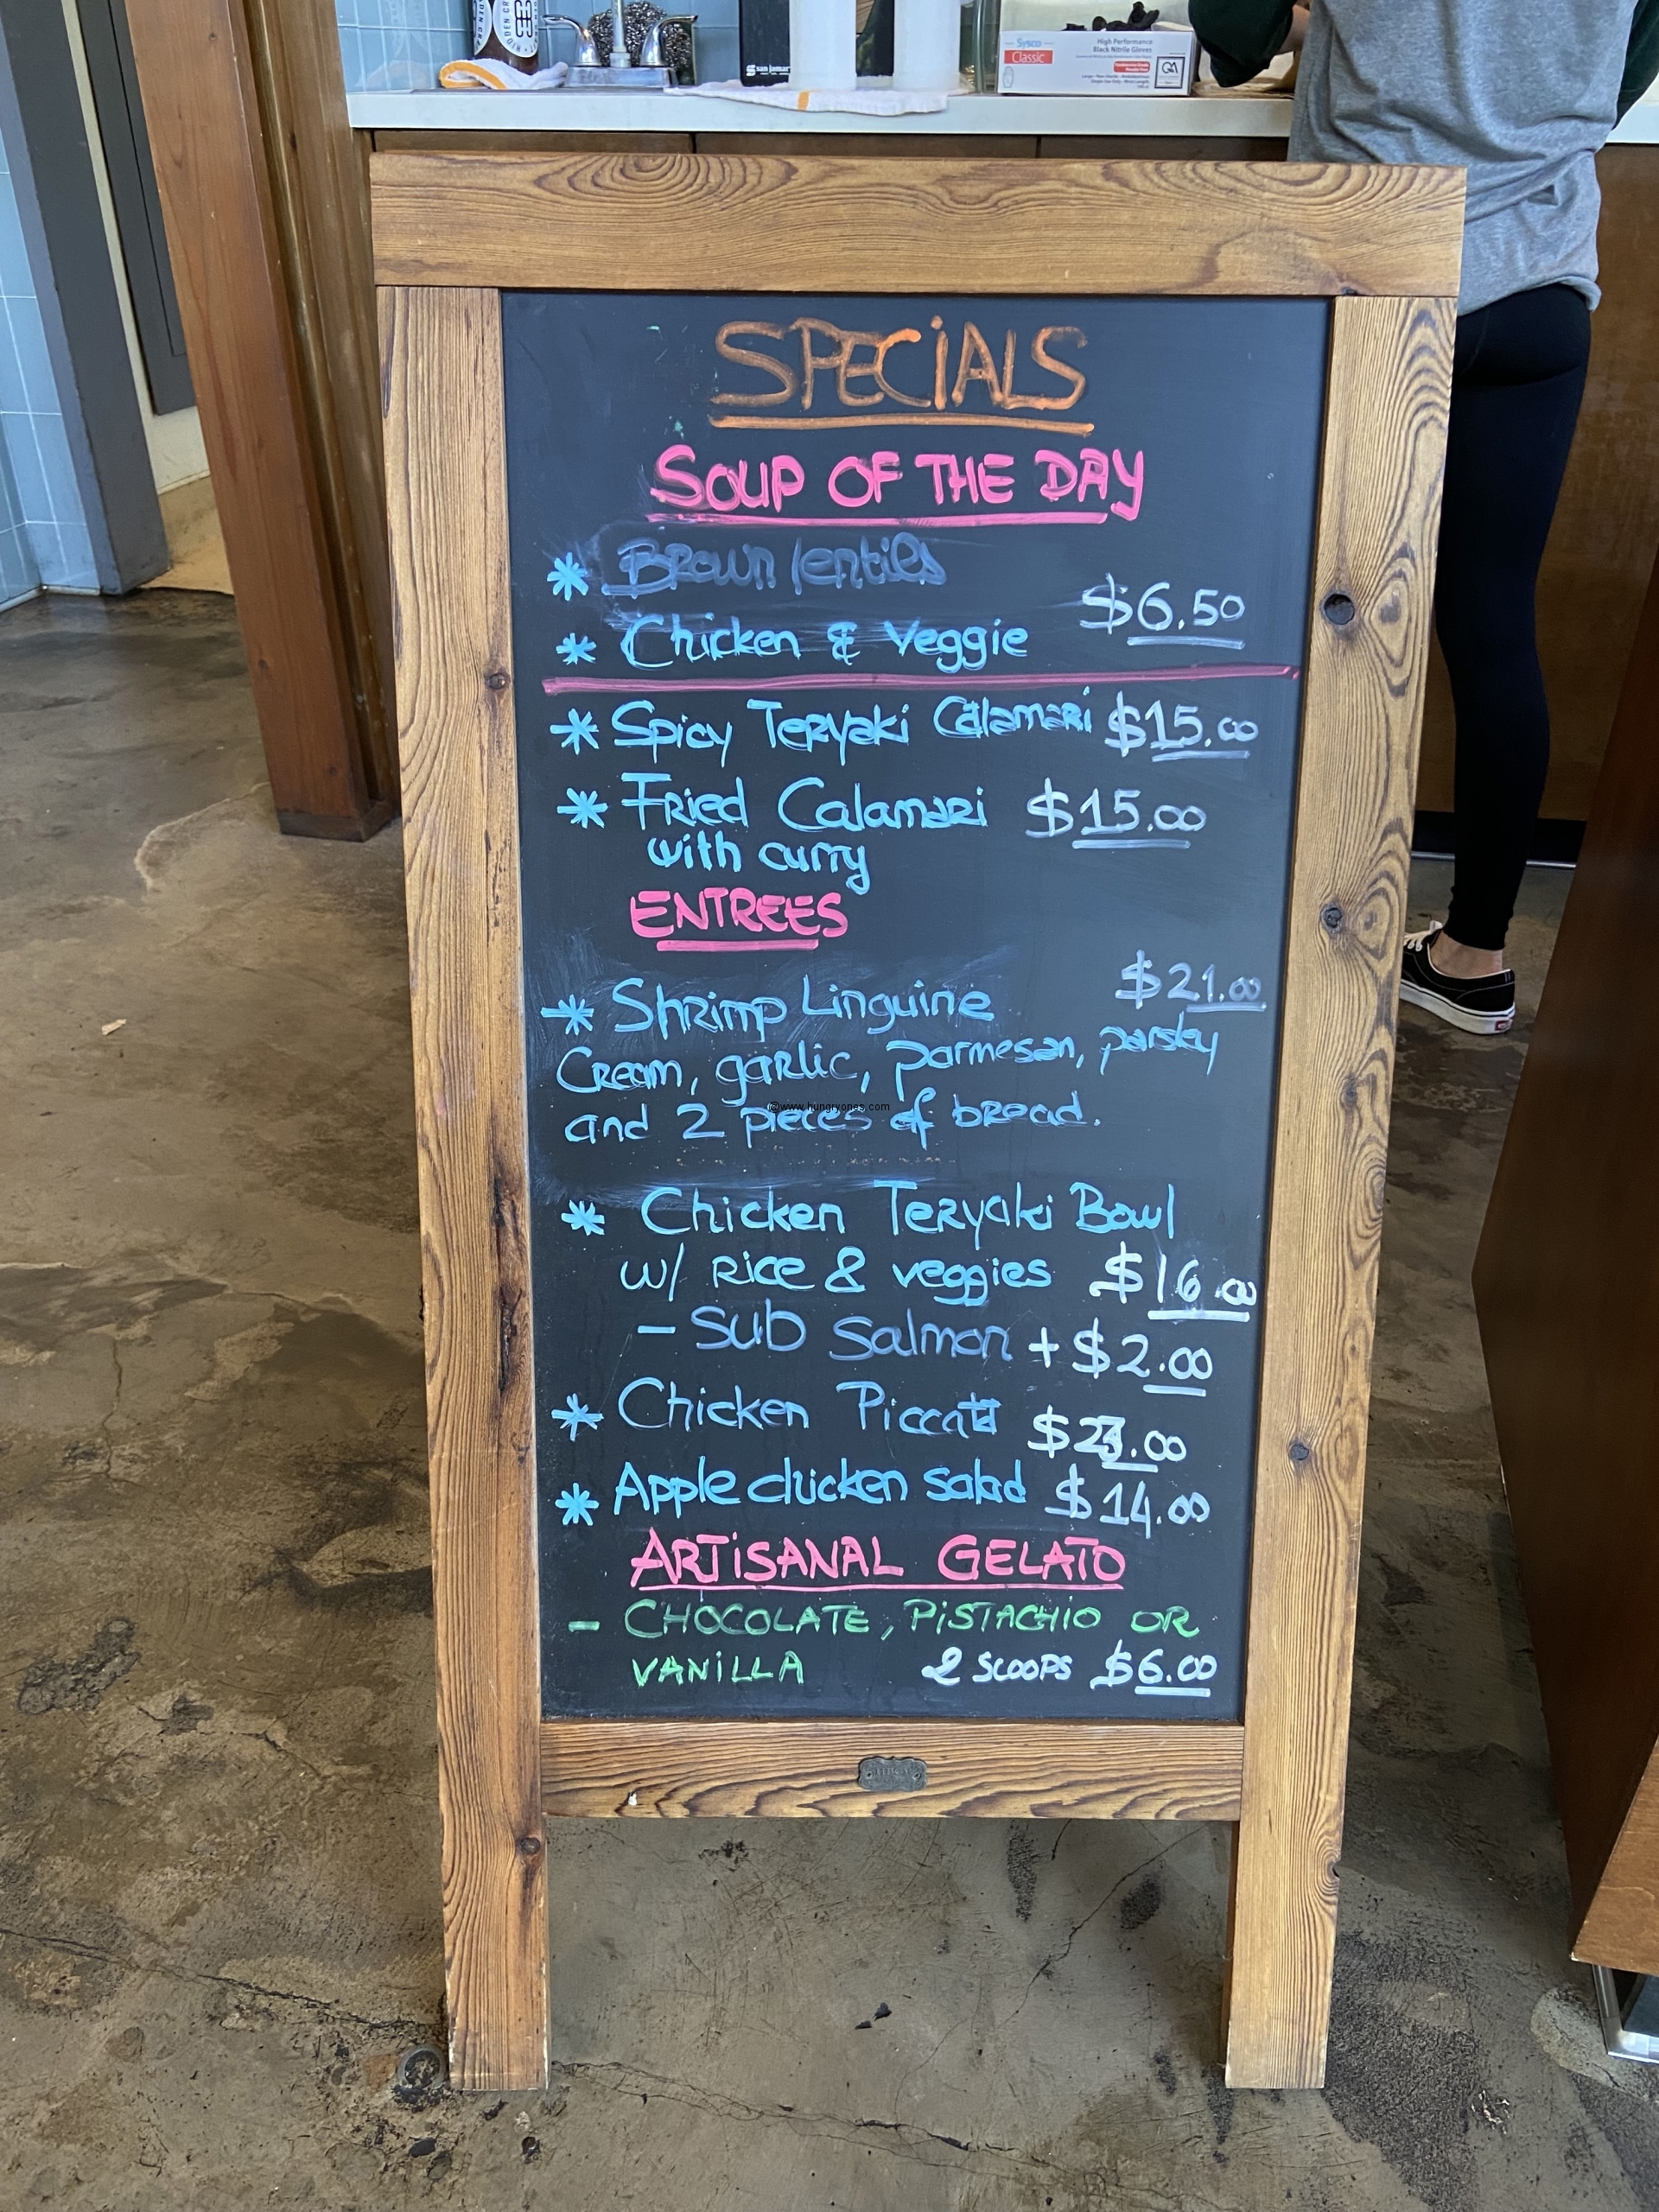 Sysco
Classic
High Performance
Black Nitrile Gloves
san jamar
SPECiALS
SOUP OF THE DAY
* Brown lentils
$6.50
* Chicken & Veggie
* Spicy Teryaki Calamari $15.00
* Fried Calamari $15.00
with curry
ENTREES
$21.00
* Shrimp Linguine
Cream, garlic, parmesan, parsley
@www.hungryones.com
and 2 pieces of bread.
* Chicken Teryaki Bowl
w/ Rice & veggies $16.00
- Sub Salmon +$2.00
* Chicken Piccata
$23.00
* Apple chicken salad $14.00
ARTiSANAL GELATO
- CHOCOLATE, PiSTACHIO OR
VANiLLA 2 SCOOPS $6.00